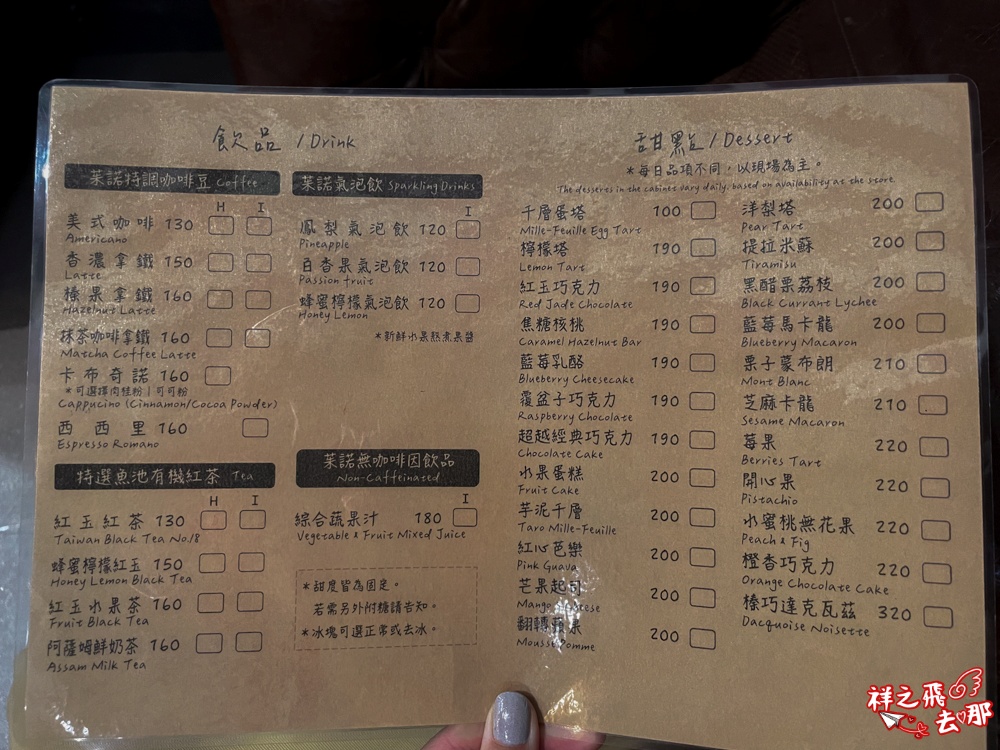 飲品 / Drink
萊諾特調咖啡豆 Coffee
H I
美式咖啡 130
Americano
香濃拿鐵 150
Latte
榛果拿鐵 160
Hazelnut Latte
抹茶咖啡拿鐵 160
Matcha Coffee Latte
卡布奇諾 160
*可選擇肉桂粉|可可粉
Cappucino (Cinnamon/Cocoa Powder)
西西里 160
Espresso Romano
特選魚池有機紅茶 Tea
H I
紅玉紅茶 130
Taiwan Black Tea No.18
蜂蜜檸檬紅玉 150
Honey Lemon Black Tea
紅玉水果茶 160
Fruit Black Tea
阿薩姆鮮奶茶 160
Assam Milk Tea
萊諾氣泡飲 Sparkling Drinks
I
鳳梨氣泡飲 120
Pineapple
百香果氣泡飲 120
Passion fruit
蜂蜜檸檬氣泡飲 120
Honey Lemon
*新鮮水果熬煮果醬
萊諾無咖啡因飲品
Non-Caffeinated
I
綜合蔬果汁 180
Vegetable & Fruit Mixed Juice
*甜度皆為固定。
若需另外附糖請告知。
*冰塊可選正常或去冰。
甜點 / Dessert
*每日品項不同,以現場為主。
The desseres in the cabinet vary daily, based on availability at the store.
千層蛋塔 100
Mille-Feuille Egg Tart
檸檬塔 190
Lemon Tart
紅玉巧克力 190
Red Jade Chocolate
焦糖核桃 190
Caramel Hazelnut Bar
藍莓乳酪 190
Blueberry Cheesecake
覆盆子巧克力 190
Raspberry Chocolate
超越經典巧克力 190
Chocolate Cake
水果蛋糕 200
Fruit Cake
芋泥千層 200
Taro Mille-Feuille
紅心芭樂 200
Pink Guava
芒果起司 200
Mango Cheese
翻轉蘋果 200
Mousse Pomme
洋梨塔 200
Pear Tart
提拉米蘇 200
Tiramisu
黑醋栗荔枝 200
Black Currant Lychee
藍莓馬卡龍 200
Blueberry Macaron
栗子蒙布朗 210
Mont Blanc
芝麻卡龍 210
Sesame Macaron
莓果 220
Berries Tart
開心果 220
Pistachio
水蜜桃無花果 220
Peach & Fig
橙香巧克力 220
Orange Chocolate Cake
榛巧達克瓦茲 320
Dacquoise Noisette
祥之飛
去那